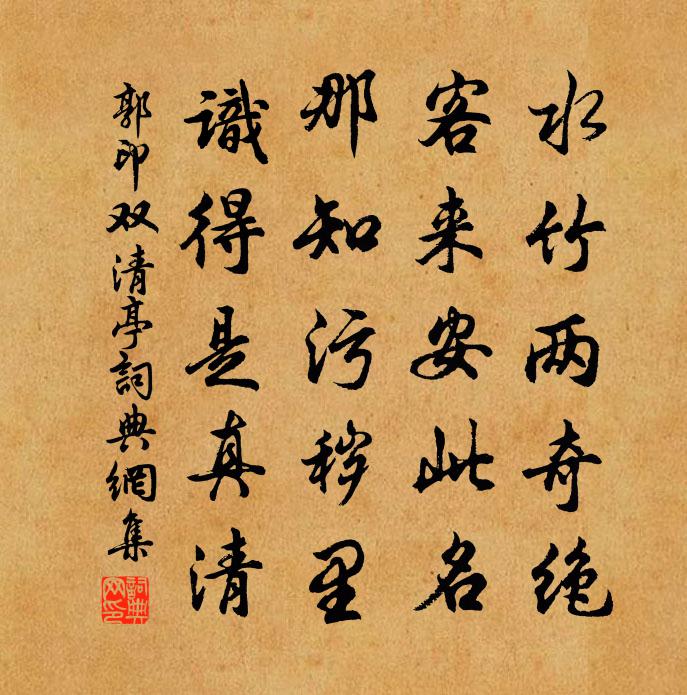 水竹两奇绝
客来安此名
那知污秽里
識得是真清
郭印双清亭詞典網集
詞典網印